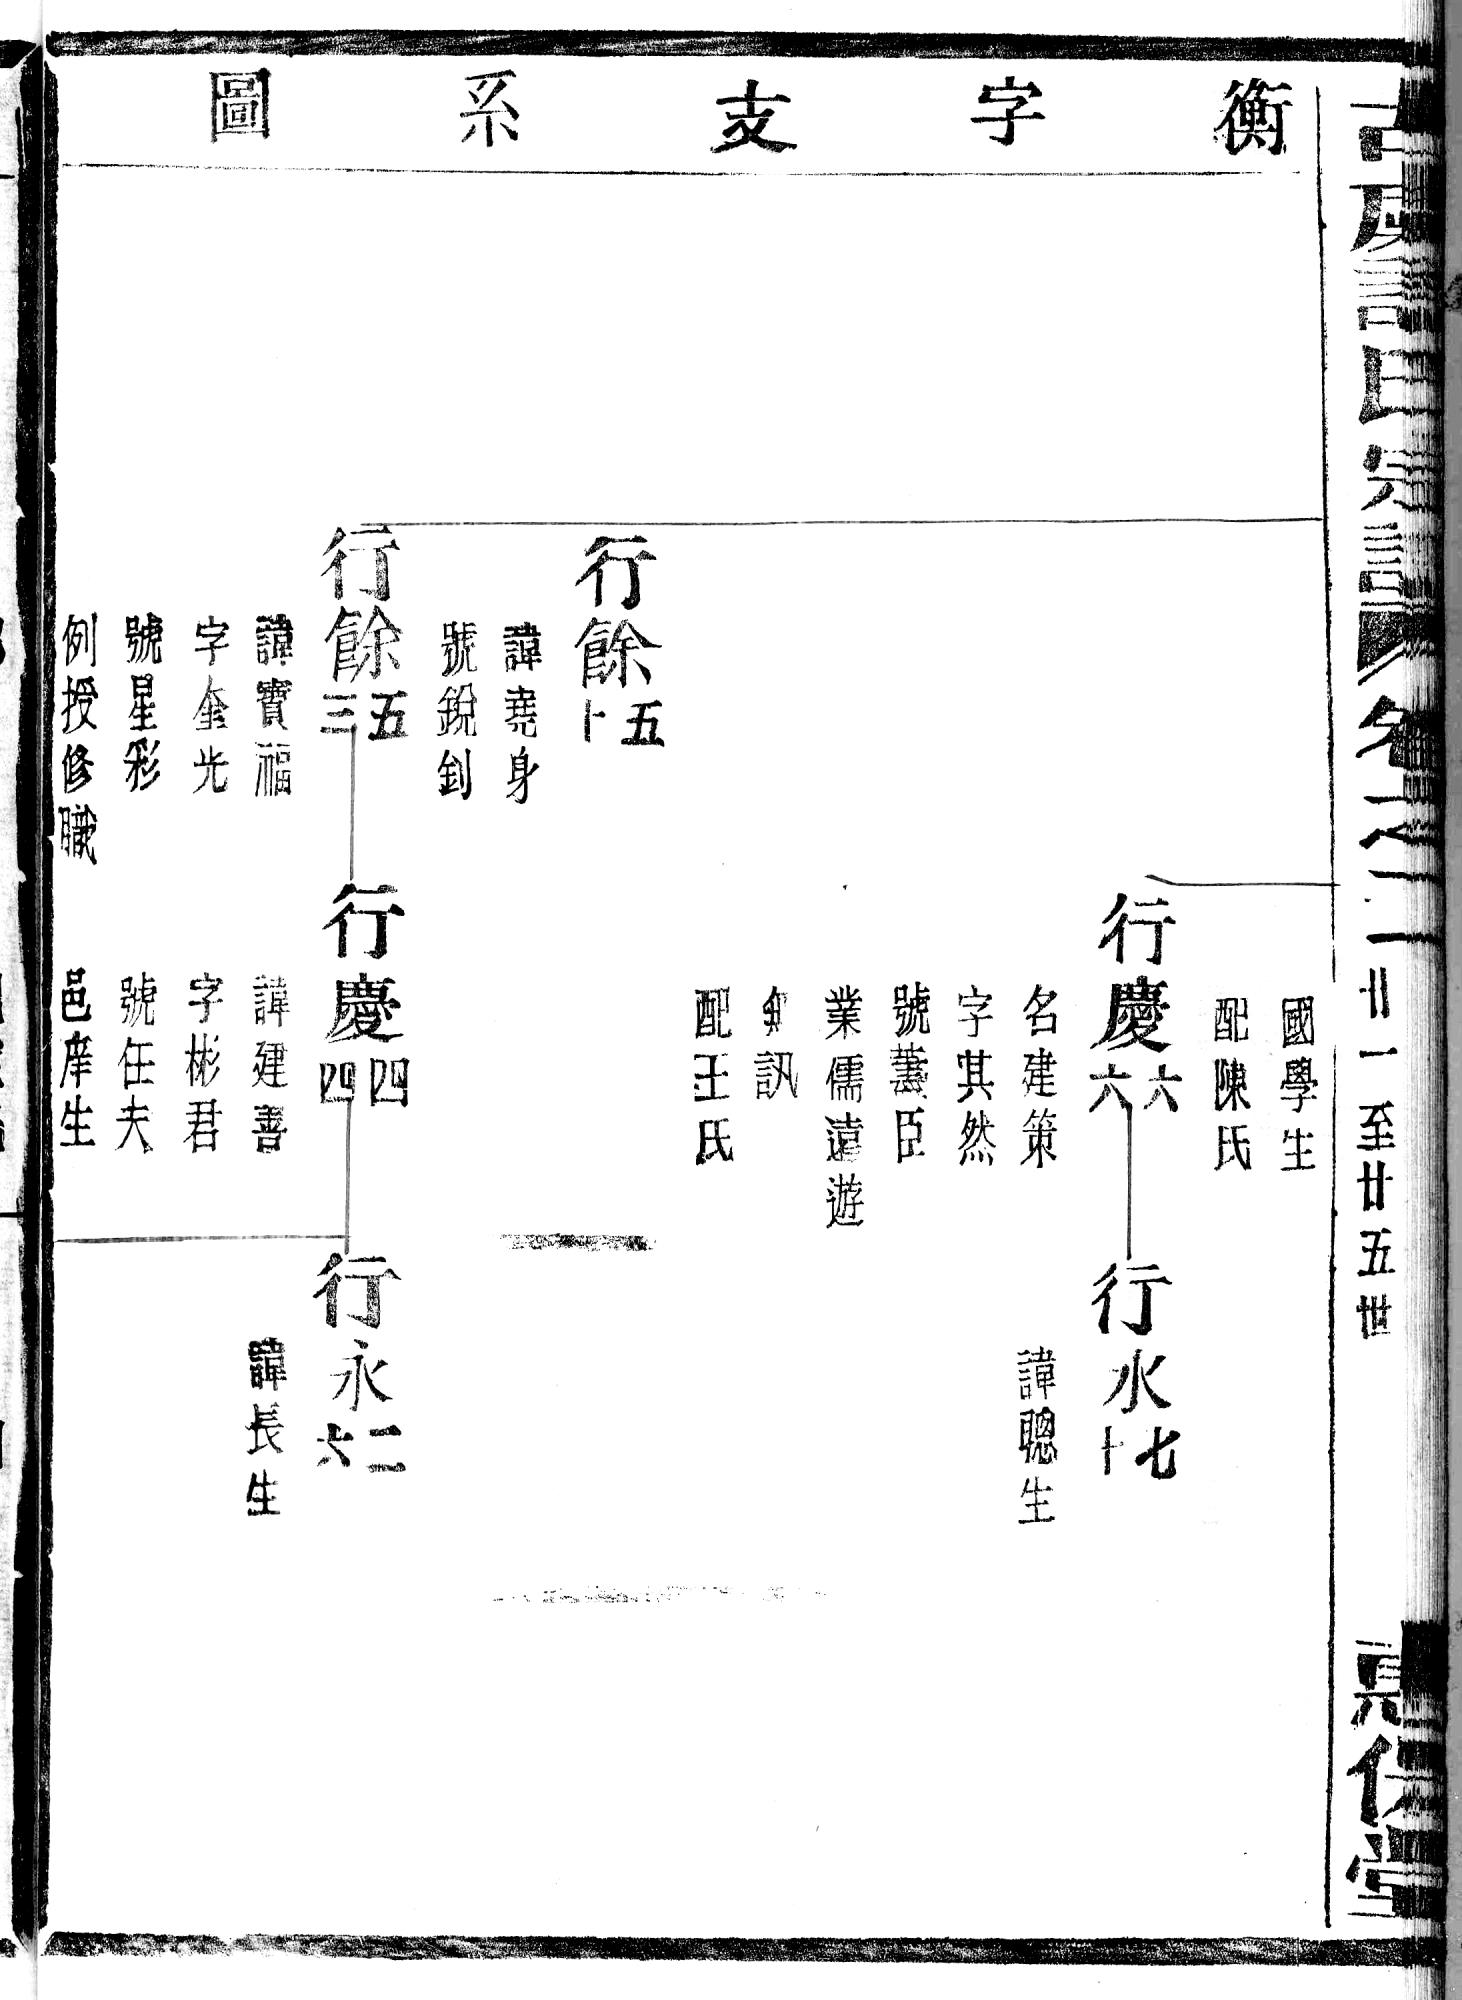 衡字支系圖
國學生
配陳氏
行慶六六
名建策
字其然
號藎臣
業儒遠遊
無訊
配王氏
行永七十
諱聰生
行餘五十
諱堯身
號銳釗
行餘五三
諱寶福
字奎光
號星彩
例授修職
行慶四四
諱建善
字彬君
號任夫
邑庠生
行永二六
諱長生
氏宗譜
卷之二
廿一至廿五世
堂